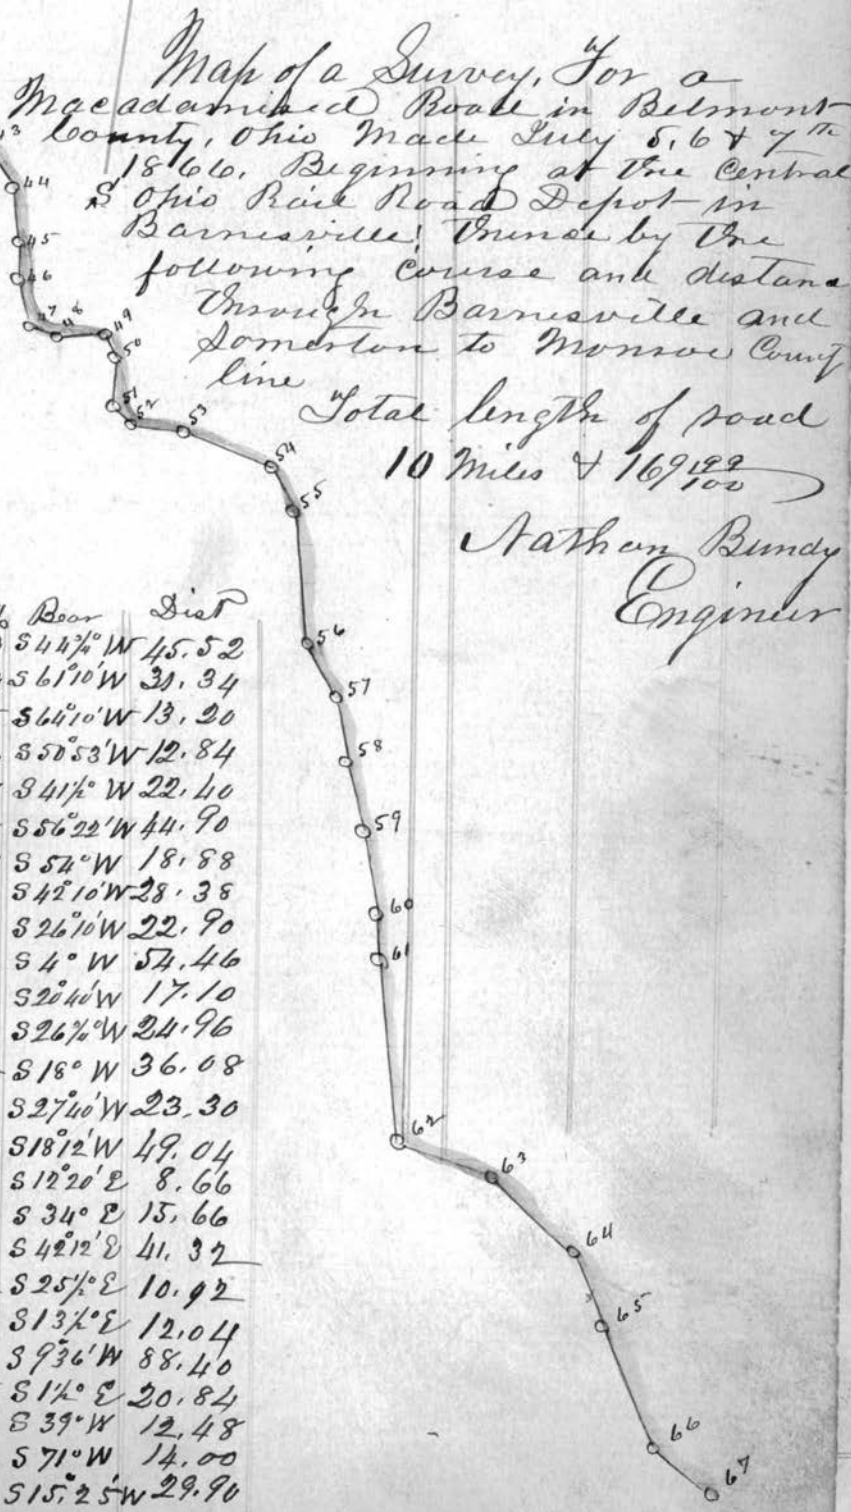 Map of a Survey, For a
Macadamized Road in Belmont
County, Ohio Made July 5, 6 & 7th
1866. Beginning at the Central
Ohio Rail Road Depot in
Barnesville; thence by the
following course and distance
through Barnesville and
Somerton to Monroe County
line
Total length of road
10 Miles & 169
Nathan Bundy
Engineer
44
45
46
47
48
49
50
51
52
53
54
55
56
57
58
59
60
61
62
63
64
65
66
67
Bear Dist
S 44¾° W 45.52
S 61°10' W 31.34
S 64°10' W 13.20
S 50°53' W 12.84
S 41½° W 22.40
S 56°22' W 44.90
S 54° W 18.88
S 42°10' W 28.38
S 26°10' W 22.90
S 4° W 54.46
S 20°40' W 17.10
S 26¾° W 24.96
S 18° W 36.08
S 27°40' W 23.30
S 18°12' W 49.04
S 12°20' E 8.66
S 34° E 15.66
S 42°12' E 41.32
S 25½° E 10.92
S 13½° E 12.04
S 9°36' W 88.40
S 1½° E 20.84
S 39° W 12.48
S 71° W 14.00
S 15°25' W 29.90